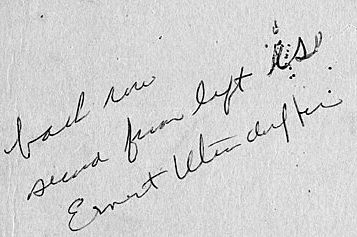 back row
second from left is
Ernest